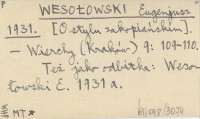 P
WESOŁOWSKI Eugenjusz
1931. [O stylu zakopiańskim].
— Wierchy (Kraków) 9: 109-110.
Też jako odbitka: Weso-
łowski E. 1931 a.
MT*